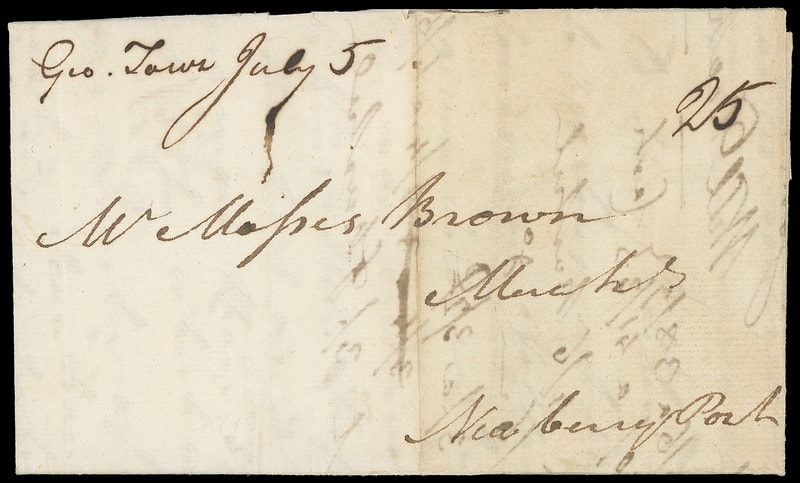 Geo. Town July 5
25
Mr Mosses Brown
Marcht
Newberry Port